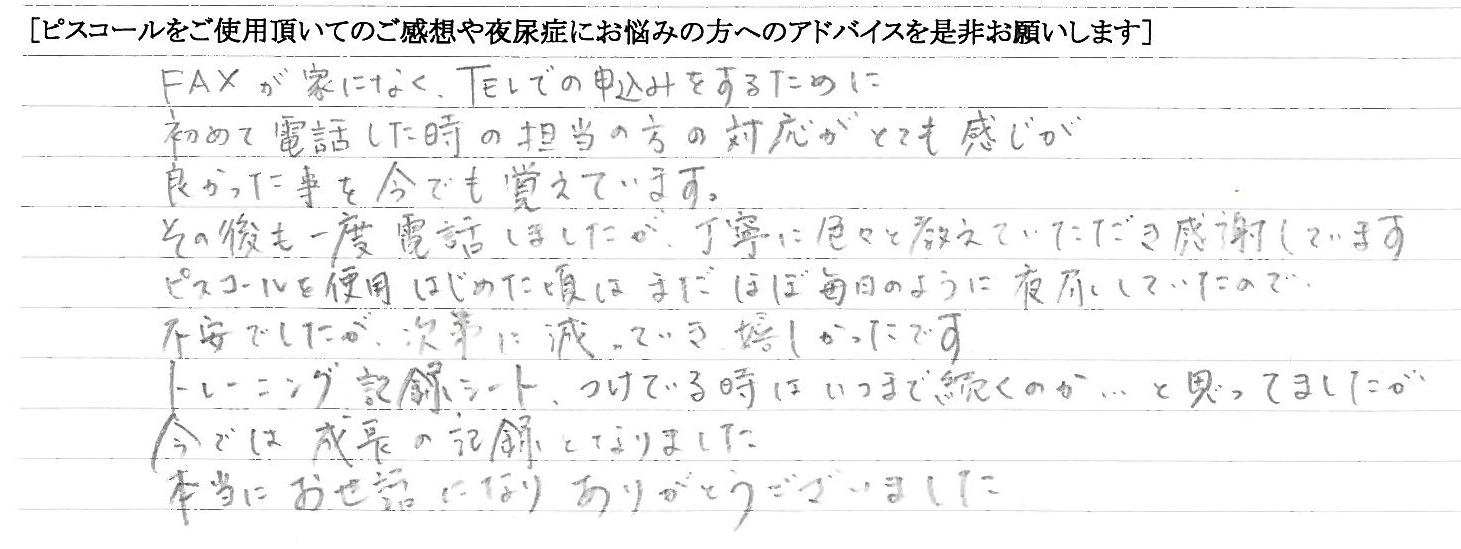 [ピスコールをご使用頂いてのご感想や夜尿症にお悩みの方へのアドバイスを是非お願いします]
FAXが家になく、TELでの申込みをするために
初めて電話した時の担当の方の対応がとても感じが
良かった事を今でも覚えています。
その後も一度電話しましたが、丁寧に色々と教えていただき感謝しています
ピスコールを使用はじめた頃はまだほぼ毎日のように夜尿していたので、
不安でしたが、次第に減っていき嬉しかったです
トレーニング記録シート、つけている時はいつまで続くのか…と思ってましたが
今では成長の記録となりました
本当にお世話になりありがとうございました